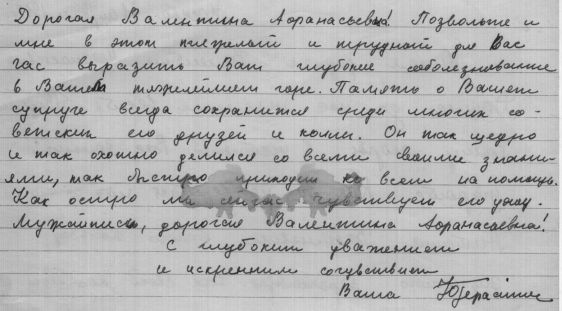 Дорогая Валентина Афанасьевна! Позвольте и
мне в этот тяжелый и трудный для Вас
час выразить Вам глубокие соболезнование
в Вашем тяжелейшем горе. Память о Вашем
супруге всегда сохранится среди многих со-
ветских его друзей и коллег. Он так щедро
и так охотно делился со всеми своими знани-
ями, так быстро приходил ко всем на помощь.
Как остро мы сейчас чувствуем его уход.
Мужайтесь, дорогая Валентина Афанасьевна!
С глубоким уважением
и искренним сочувствием
Ваша